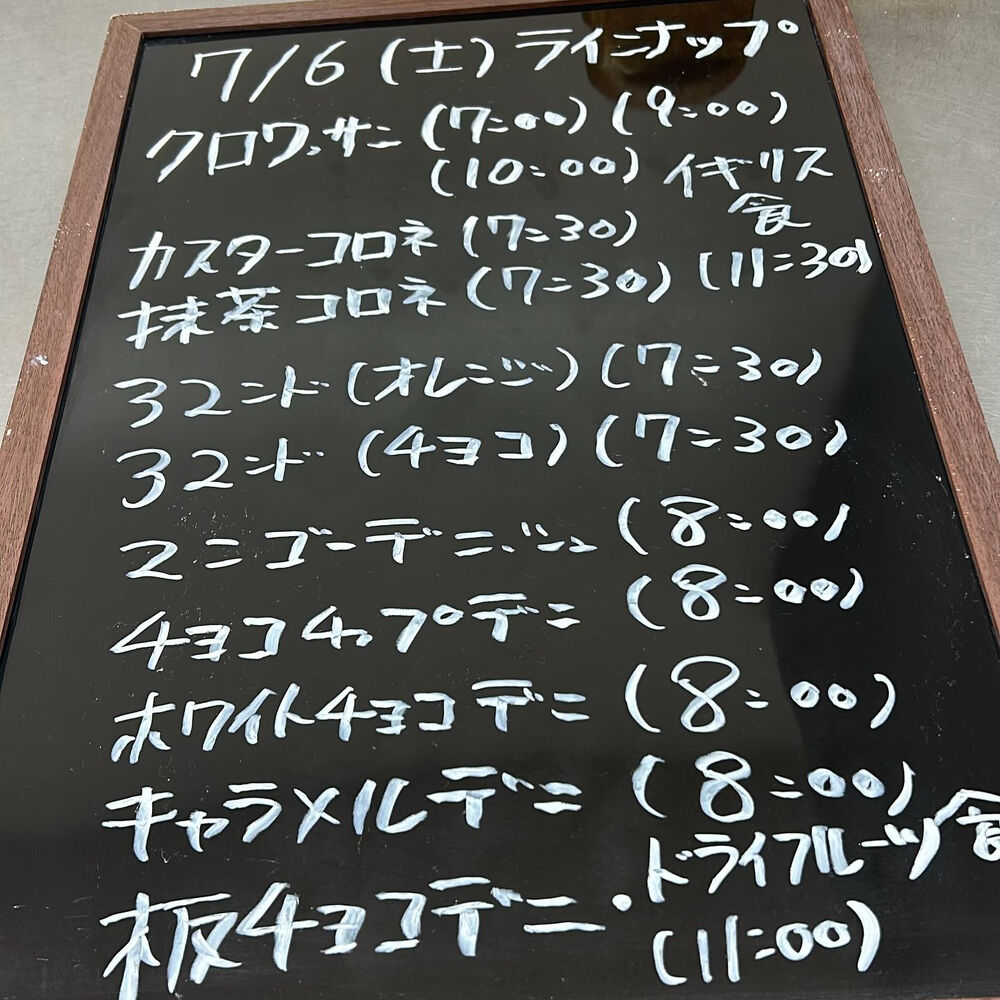 7/6(土)ラインナップ
クロワッサン(7:00)(9:00)
(10:00) イギリス
食
カスターコロネ(7:30)
抹茶コロネ(7:30) (11:30)
32ニド(オレンジ)(7:30)
32ニド(チョコ)(7:30)
マンゴーデニッシュ(8:00)
チョコチップデニ(8:00)
ホワイトチョコデニ(8:00)
キャラメルデニ(8:00)
ドライフルーツ食
板チョコデニ・
(11:00)